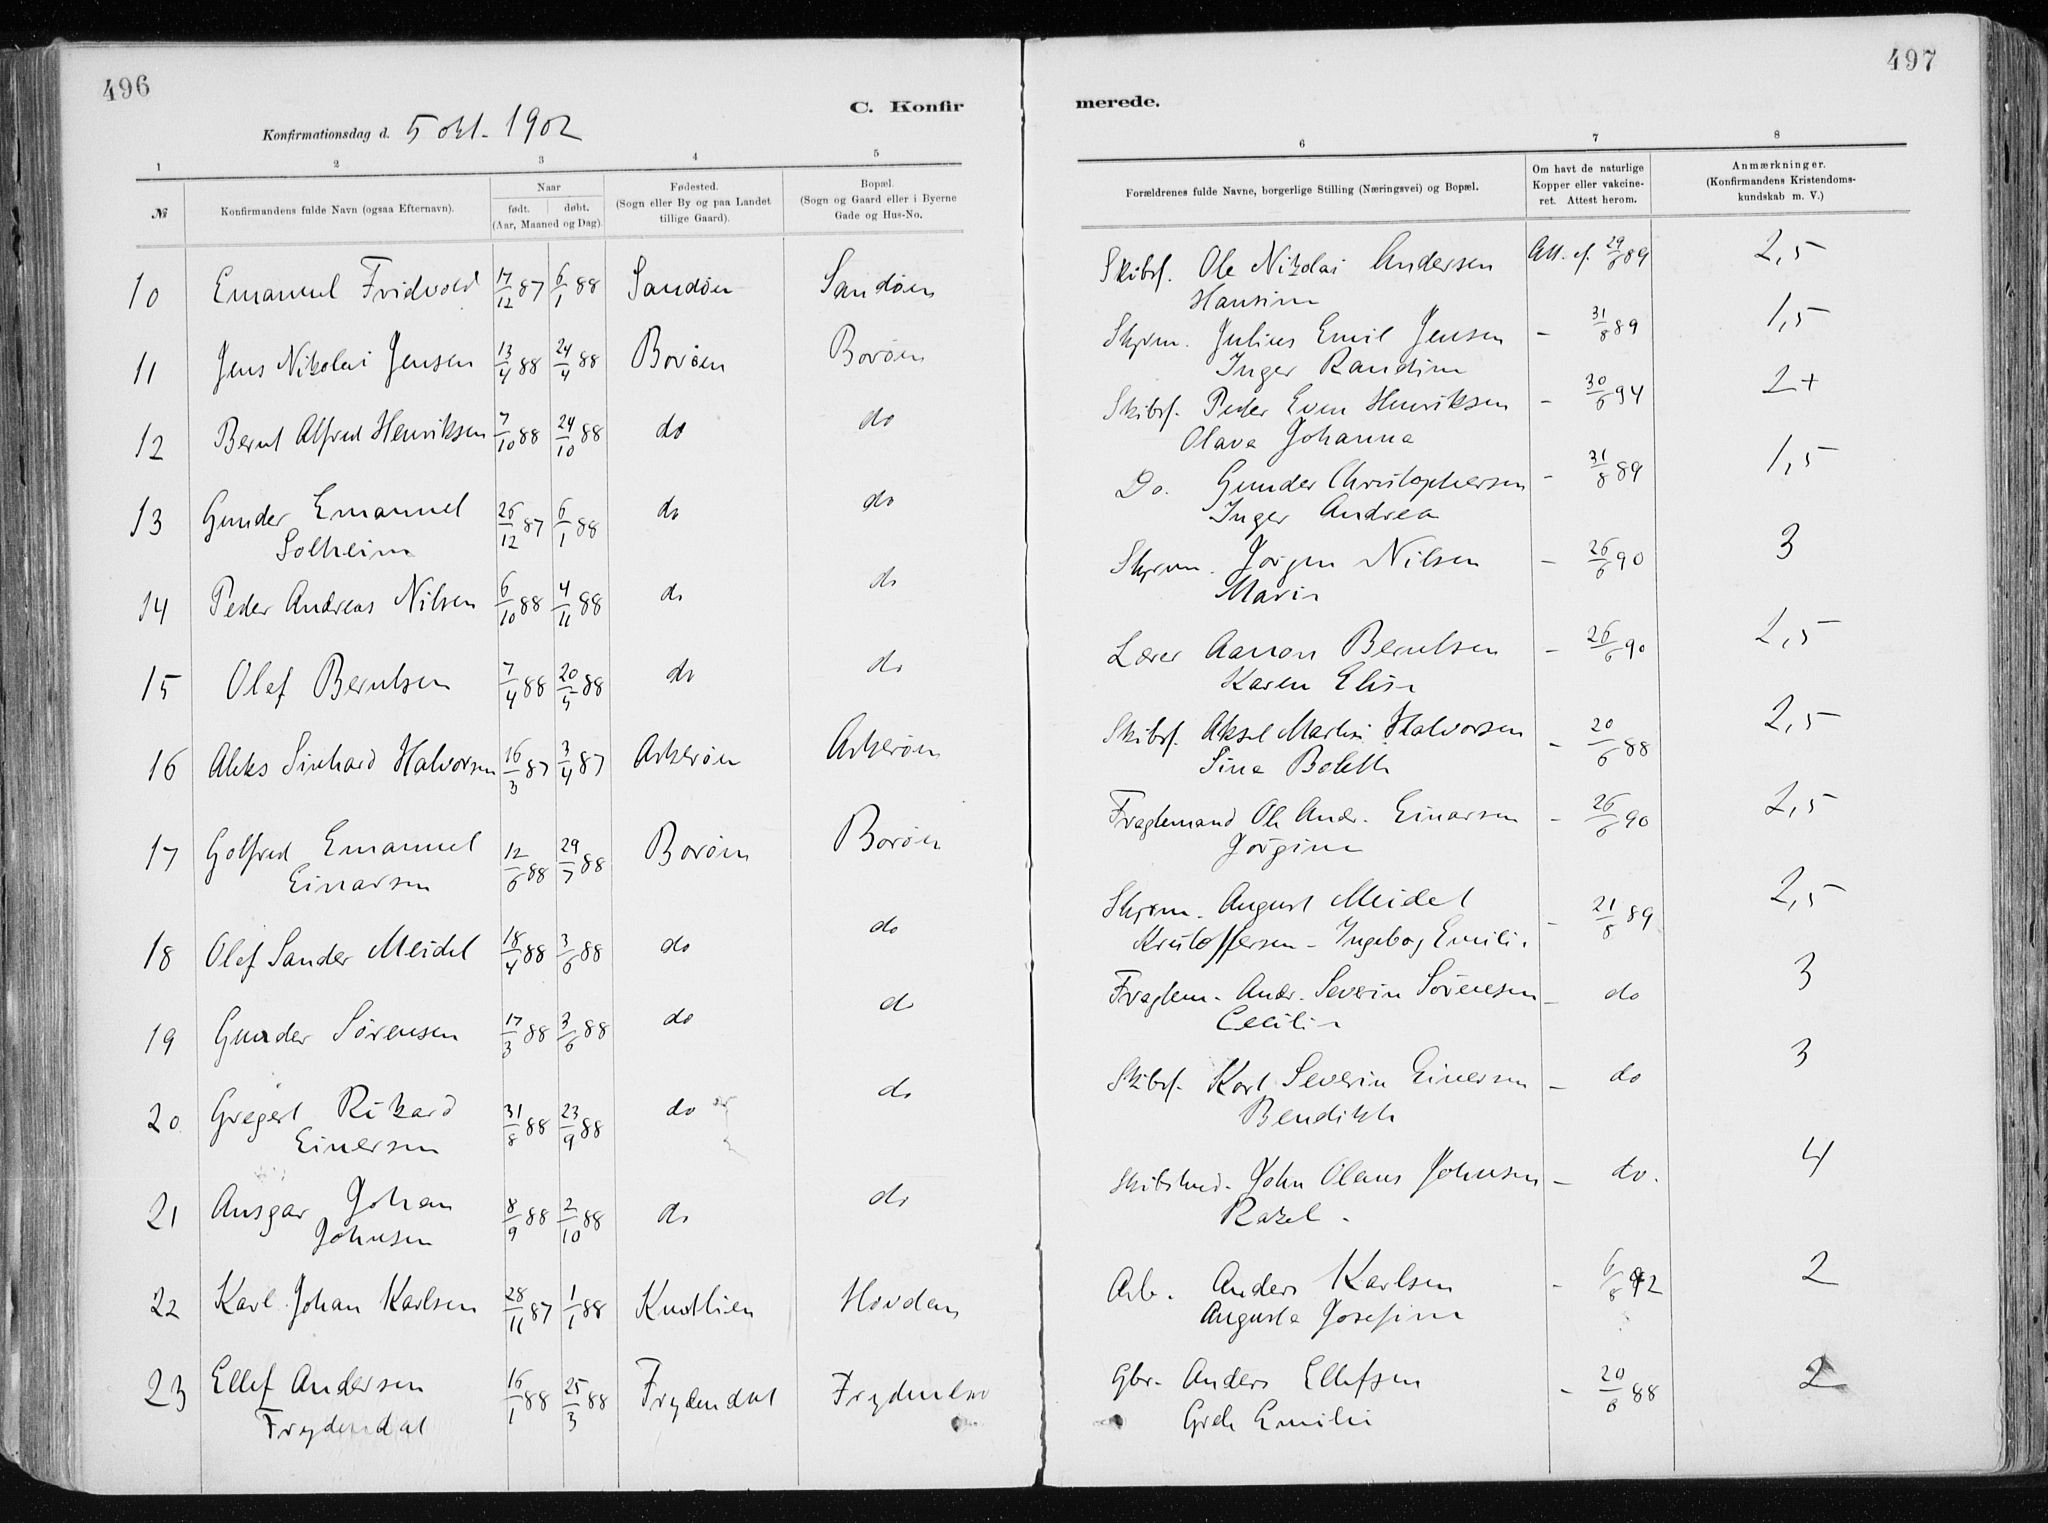 496
C. Konfir
Konfirmationsdag d. 5 okt. 1902
1 2 3 4 5
№ Konfirmandens fulde Navn (ogsaa Efternavn). Naar født. døbt. (Aar, Maaned og Dag) Fødested. (Sogn eller By og paa Landet tillige Gaard). Bopæl. (Sogn og Gaard eller i Byerne Gade og Hus-No.
10 Emanuel Fridvold 17/12 87 6/1 88 Sandøen Sandøen
11 Jens Nikolai Jensen 13/4 88 24/4 88 Borøen Borøen
12 Bernt Alfred Henriksen 7/10 88 24/10 88 do do
13 Gunder Emanuel 26/12 87 6/1 88 do do
Solheim
14 Peder Andreas Nilsen 6/10 88 4/11 88 do do
15 Olef Berntsen 7/4 88 20/5 88 do do
16 Aleks Sinhard Halvorsen 16/3 87 3/4 87 Askerøen Askerøen
17 Golfred Emanuel 12/6 88 29/7 88 Borøen Borøen
Einarsen
18 Olef Sander Meidel 18/4 88 3/6 88 do do
19 Gunder Sörensen 17/3 88 3/6 88 do do
20 Gregert Rikard 31/8 88 23/9 88 do do
Einersen
21 Ansgar Johan 8/9 88 2/10 88 do do
Johnsen
22 Karl Johan Karlsen 28/11 87 1/1 88 Knutlien Hovdan
23 Ellef Andersen 16/1 88 25/3 88 Frydendal Frydendal
Frydendal
497
merede.
6 7 8
Forældrenes fulde Navne, borgerlige Stilling (Næringsvei) og Bopæl. Om havt de naturlige Kopper eller vakcineret. Attest herom. Anmærkninger. (Konfirmandens Kristendomskundskab m. V.)
Skibsf. Ole Nikolai Andersen Att. af 29/6 89 2,5
Hansine
Skprm. Julius Emil Jensen - 31/8 89 1,5
Inger Randine
Skibsf. Peder Even Henriksen - 30/6 94 2+
Olava Johanna
Do. Gunder Christophersen - 31/8 89 1,5
Inger Andrea
Skprm. Jörgen Nilsen - 26/6 90 3
Marie
Lærer Aanon Berntsen - 26/6 90 2,5
Karen Elise
Skibsf. Aksel Martin Halvorsen - 20/6 88 2,5
Sina Bolette
Fragtemand Ole Andr. Einarsen - 26/6 90 2,5
Jörgine
Skprm. August Meidel - 21/8 89 2,5
Kristoffersen - Ingeborg Emilie
Fragtem. Andr. Severin Sörensen - do 3
Cecilie
Skibsf. Karl Severin Einersen - do 3
Bendikte
Skibstmd. John Olaus Johnsen - do. 4
Rakel.
Arb. Anders Karlsen - 6/8 92 2
Augusta Josefine
Gbr. Anders Ellefsen - 20/6 88 2
Grete Emilie